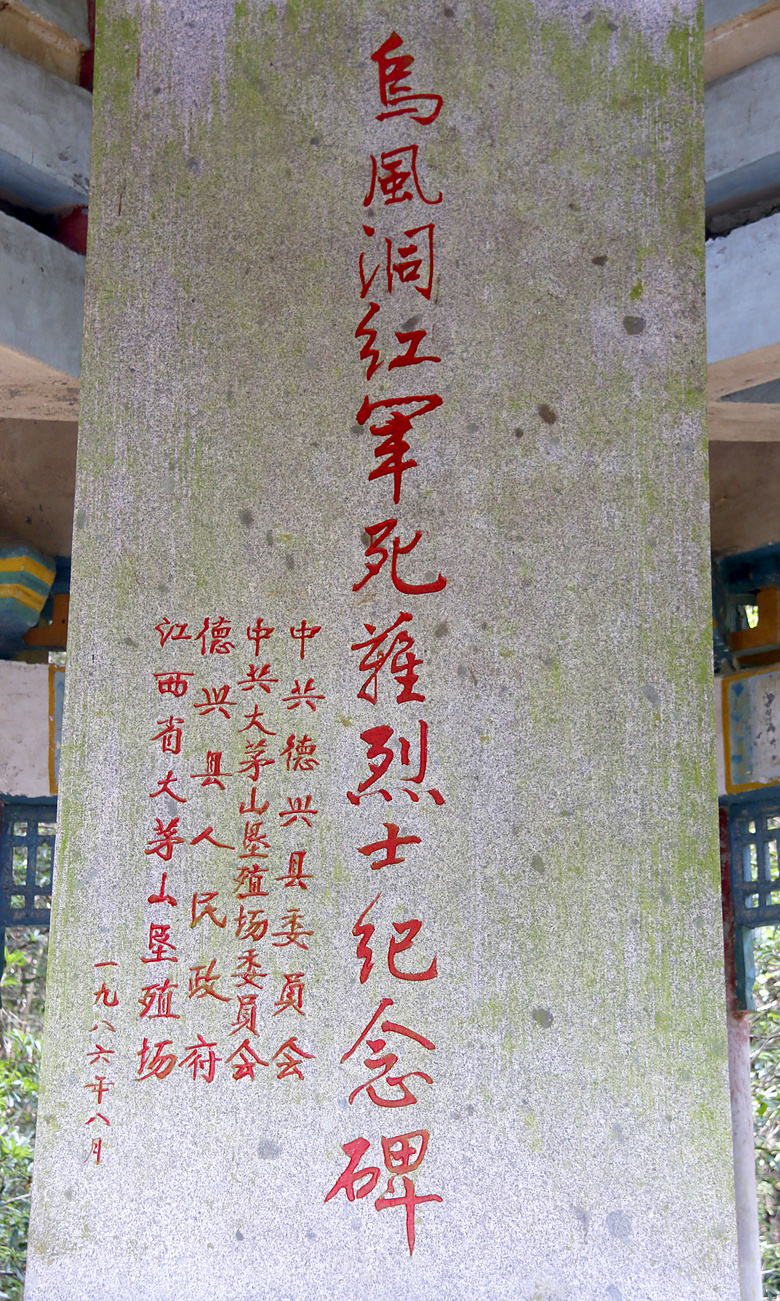 烏風洞红军死难烈士纪念碑
中共德兴县委員会
中共大茅山垦殖场委員会
德兴县人民政府
江西省大茅山垦殖场
一九八六年八月